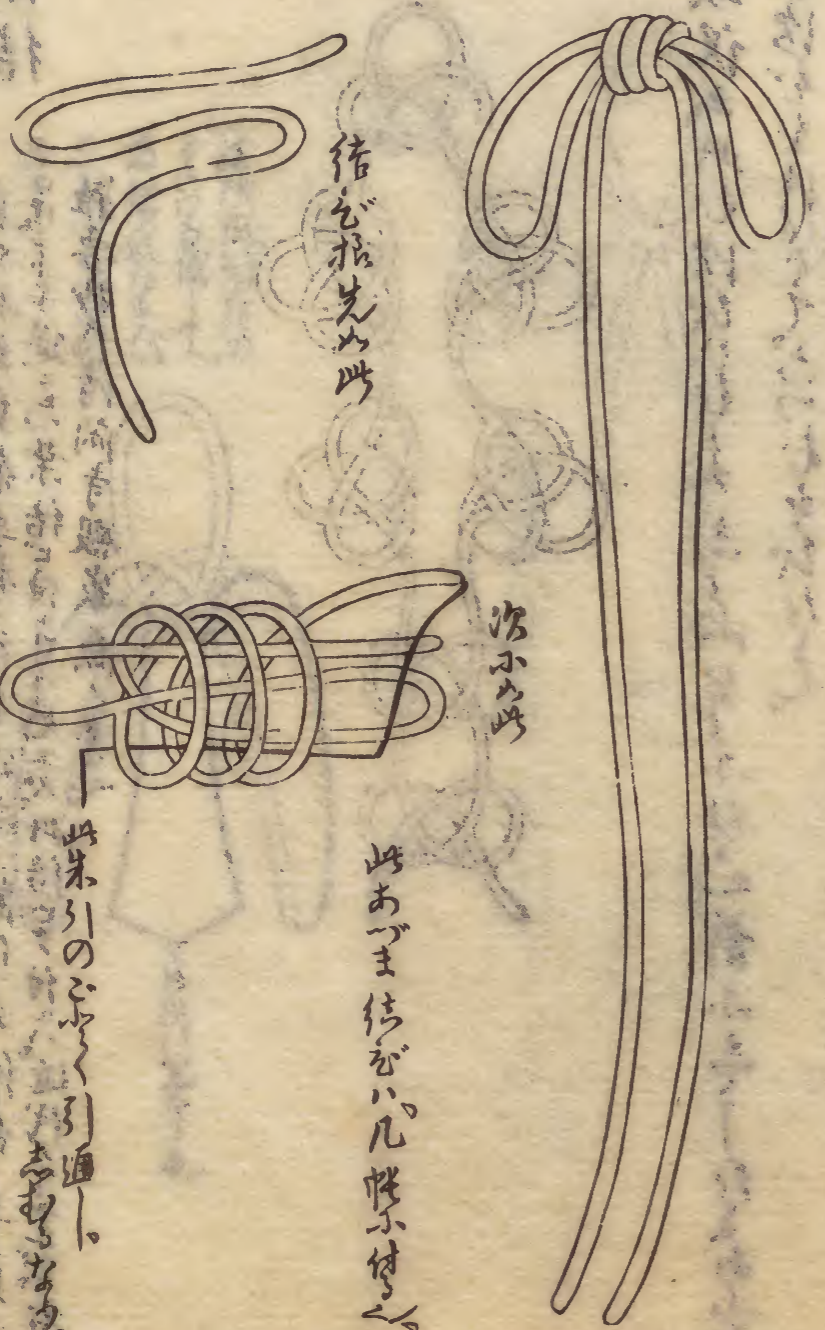 結び様先如此
次に如此
此あづま結びハ。几帳に付る
此朱引のごとく引通し。
志むるなり